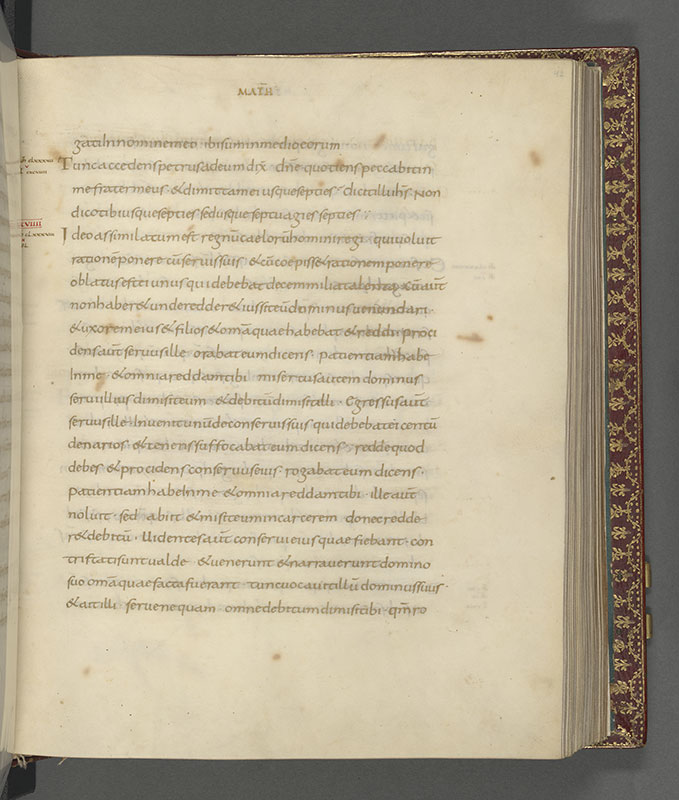 MATH
gati In nomine meo ibi sum in medio eorum
Tunc accedens petrus ad eum dix̄ dn̄e quotiens peccabit in
me frater meus & dimittam ei usque septies dicit illi ih̄s Non
dico tibi usque septies sed usque septuagies septies
Ideo assimilatum est regnū caelorū homini regi qui voluit
rationē ponere cū servis suis & cū coepiss& rationem ponere
oblatus est ei unus qui debebat decem milia talenta cū aūt
non haber& unde redder& iussit eū dominus venundari
& uxorem eius & filios & omā quae habebat & reddi proci
dens aūt servus ille orabat eum dicens patientiam habe
In me & omnia reddam tibi misertus autem dominus
servi illius dimisit eum & debitū dimisit illi Egressus aūt
servus ille Invenit unū de conservis suis qui debebat ei centū
denarios & tenens suffocabat eum dicens redde quod
debes & procidens conservus eius rogabat eum dicens
patientiam habe In me & omnia reddam tibi ille aūt
noluit sed abiit & misit eum in carcerem donec redde
r& debitū Videntes aūt conservi eius quae fiebant con
tristati sunt valde & venerunt & narraverunt domino
suo omā quae facta fuerant tunc vocavit illū dominus suus
& ait illi serve nequam omne debitum dimisi tibi qm̄ ro